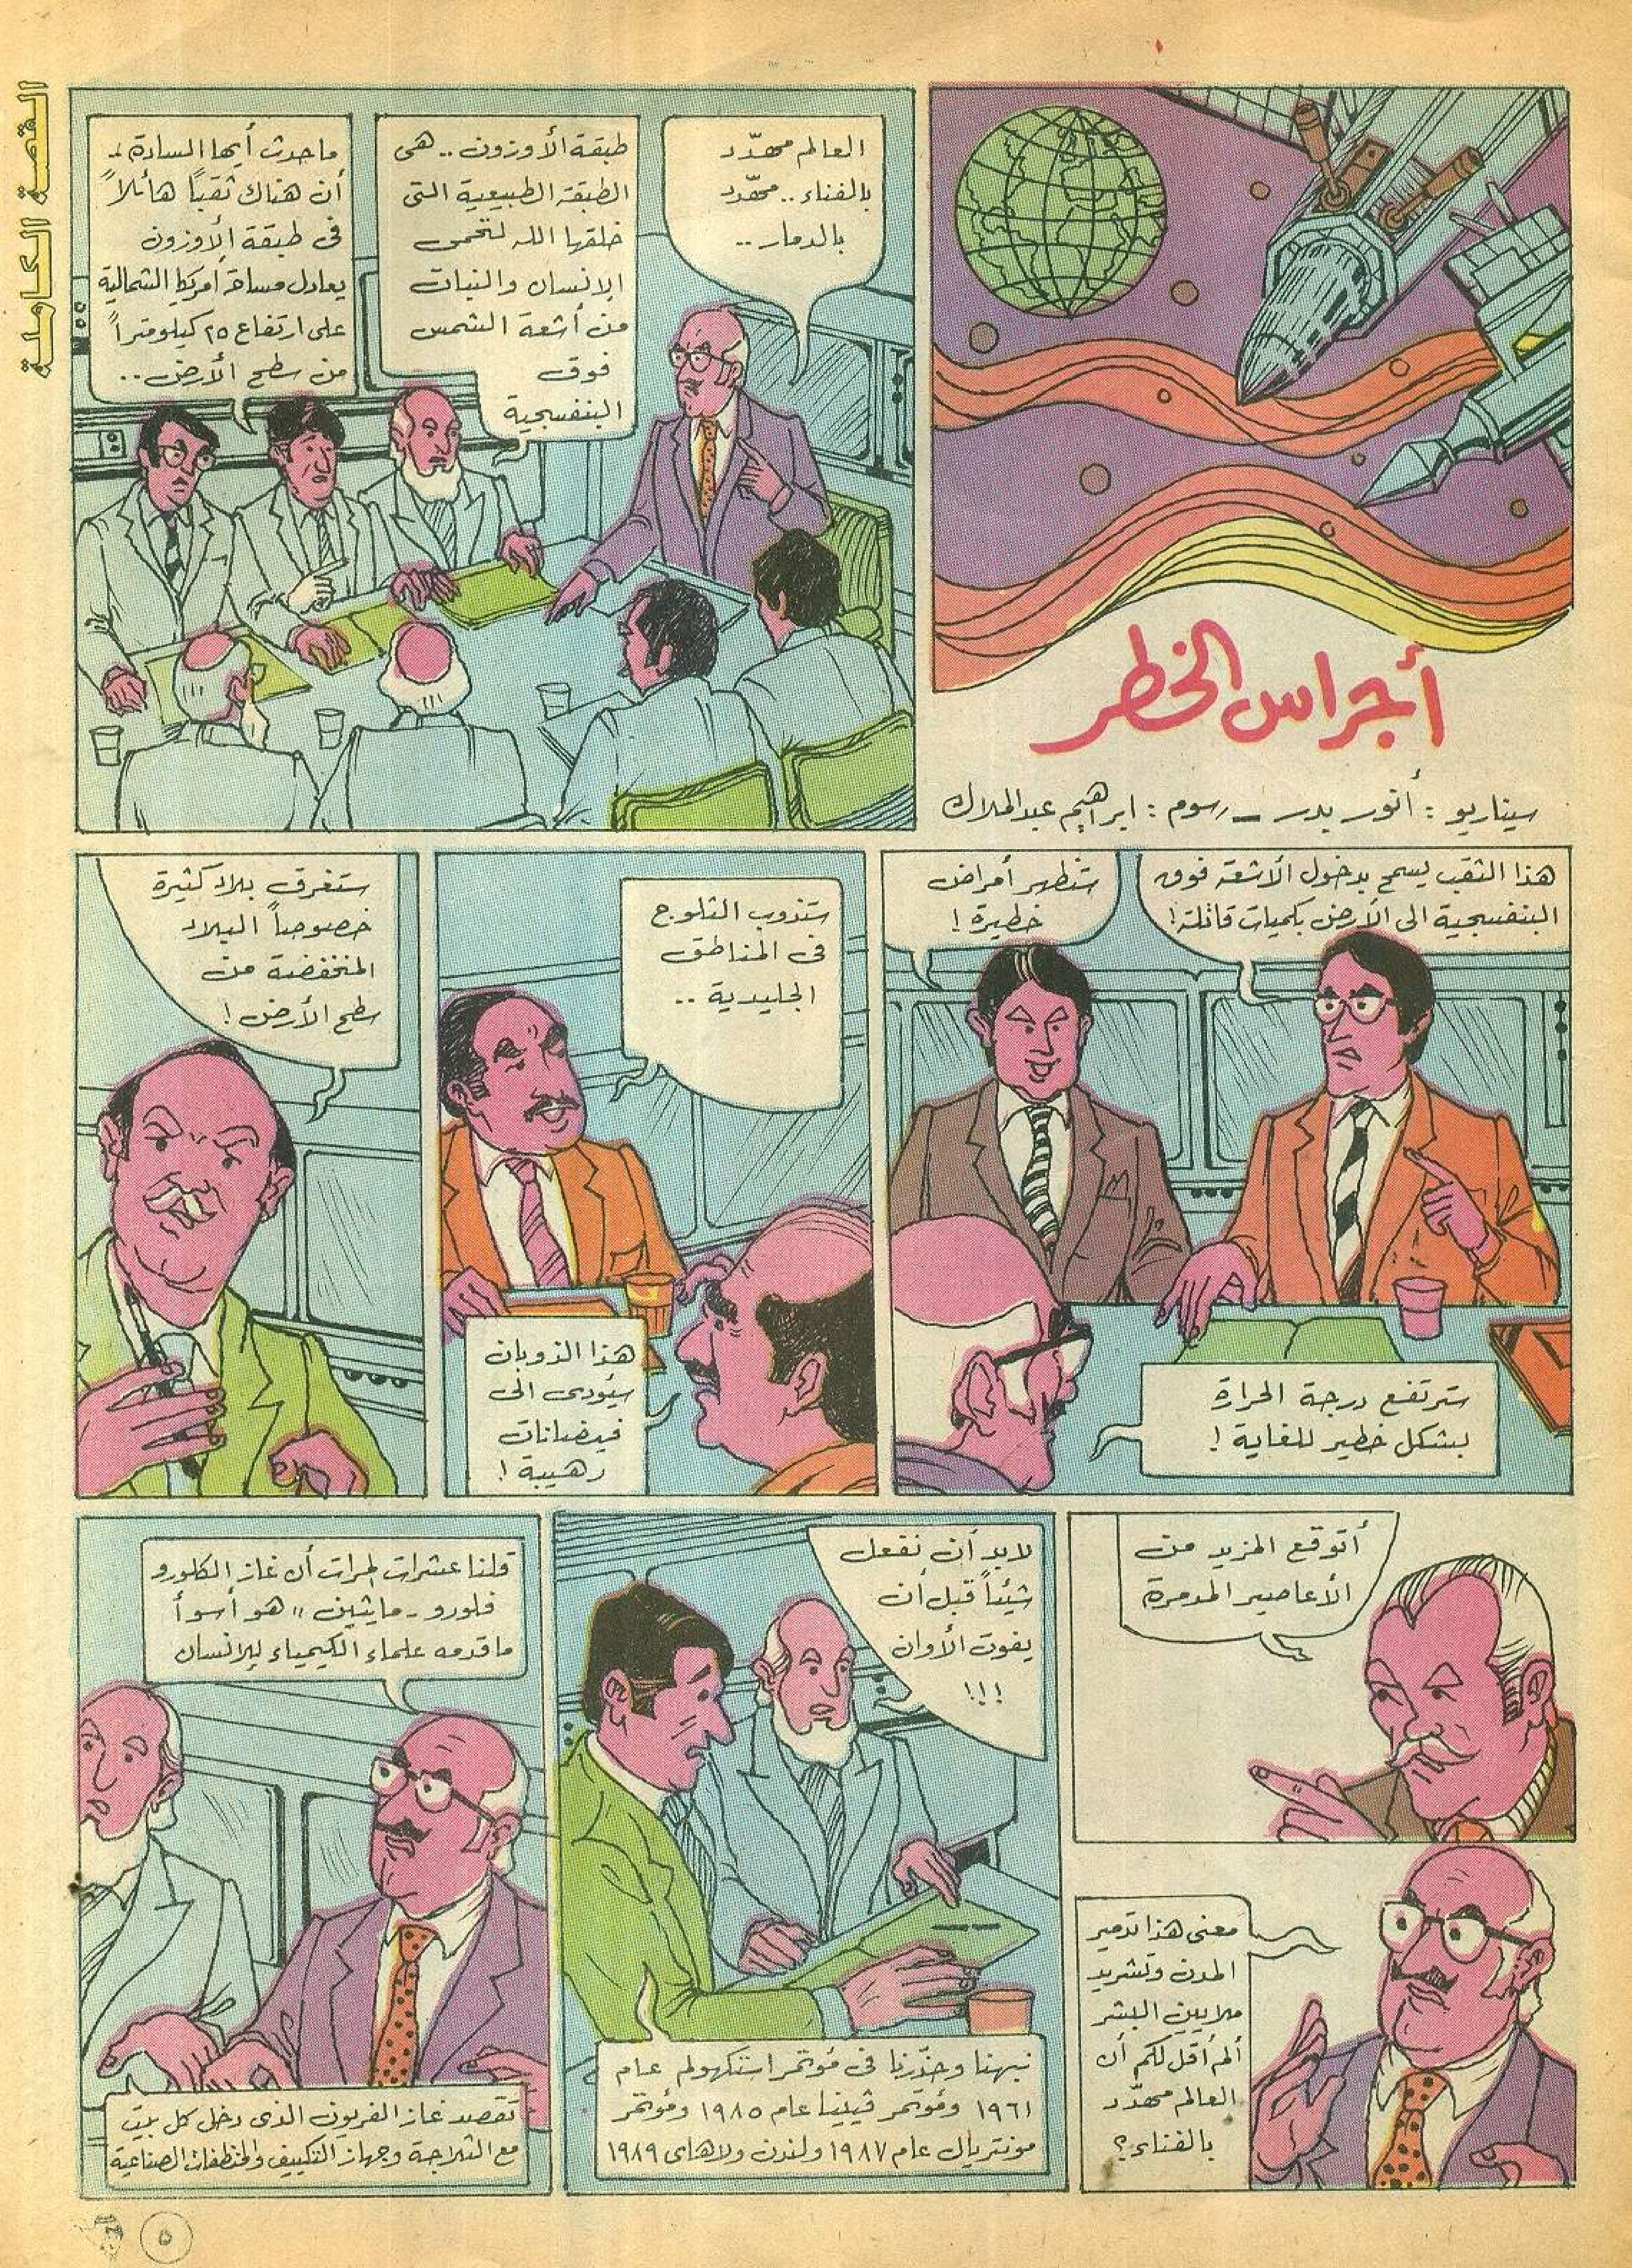 القصة الكاملة
أجراس الخطر
سيناريو : أنور بدر - رسوم : ابراهيم عبد الملاك
العالم مهدّد
بالفناء .. مهدّد
بالدمار ..
طبقة الأوزون .. هى
الطبقة الطبيعية التى
خلقها الله لتحمى
الإنسان والنبات
من أشعة الشمس
فوق
البنفسجية
ماحدث أيها السادة ..
أن هناك ثقباً هائلاً
فى طبقة الأوزون
يعادل مساحة أمريكا الشمالية
على ارتفاع ٢٥ كيلومتراً
من سطح الأرض ..
هذا الثقب يسمح بدخول الأشعة فوق
البنفسجية الى الأرض بكميات قاتلة !
ستظهر أمراض
خطيرة !
سترتفع درجة الحرارة
بشكل خطير للغاية !
ستذوب الثلوج
فى المناطق
الجليدية ..
هذا الذوبان
سيؤدى الى
فيضانات
رهيبة !
ستغرق بلاد كثيرة
خصوصاً البلاد
المنخفضة من
سطح الأرض !
أتوقع المزيد من
الأعاصير المدمرة
معنى هذا تدمير
المدن وتشريد
ملايين البشر
ألم أقل لكم أن
العالم مهدّد
بالفناء ؟
لابد أن نفعل
شيئاً قبل أن
يفوت الأوان
!!!
نبهنا وحذّرنا فى مؤتمر استكهولم عام
١٩٦١ ومؤتمر ڤيينا عام ١٩٨٥ ومؤتمر
مونتريال عام ١٩٨٧ ولندن ولاهاى ١٩٨٩
قلنا عشرات المرات أن غاز الكلورو
فلورو - مايثين " هو أسوأ
ماقدمه علماء الكيمياء للإنسان
تقصد غاز الفريون الذى دخل كل بيت
مع الثلاجة وجهاز التكييف والمنظفات الصناعية
٥